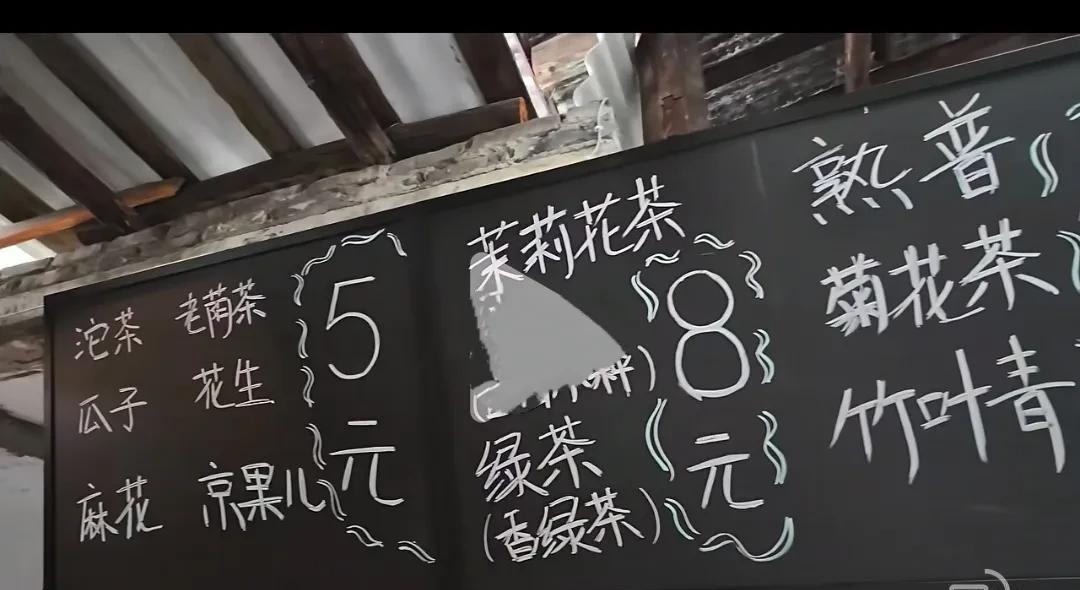 沱茶 老荫茶
瓜子 花生
麻花 京果儿
5
元
茉莉花茶
绿茶
(香绿茶)
8
元
熟普
菊花茶
竹叶青